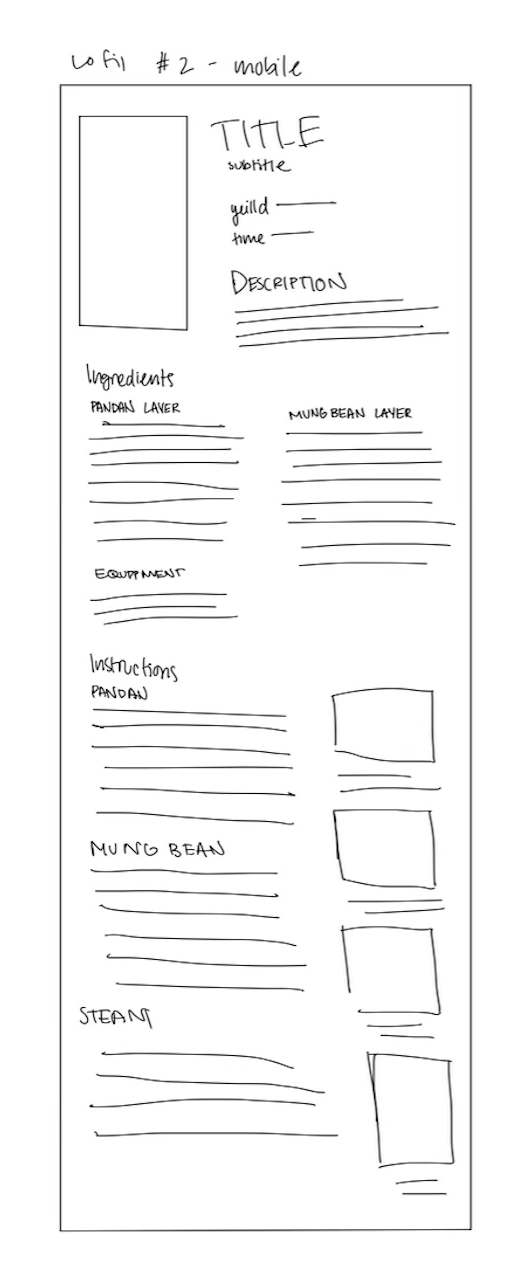 Lo fi #2 - mobile
TITLE
subtitle
yeilld
time
DESCRIPTION
Ingredients
PANDAN LAYER
MUNG BEAN LAYER
EQUIPPMENT
Instructions
PANDAN
MUNG BEAN
STEAM